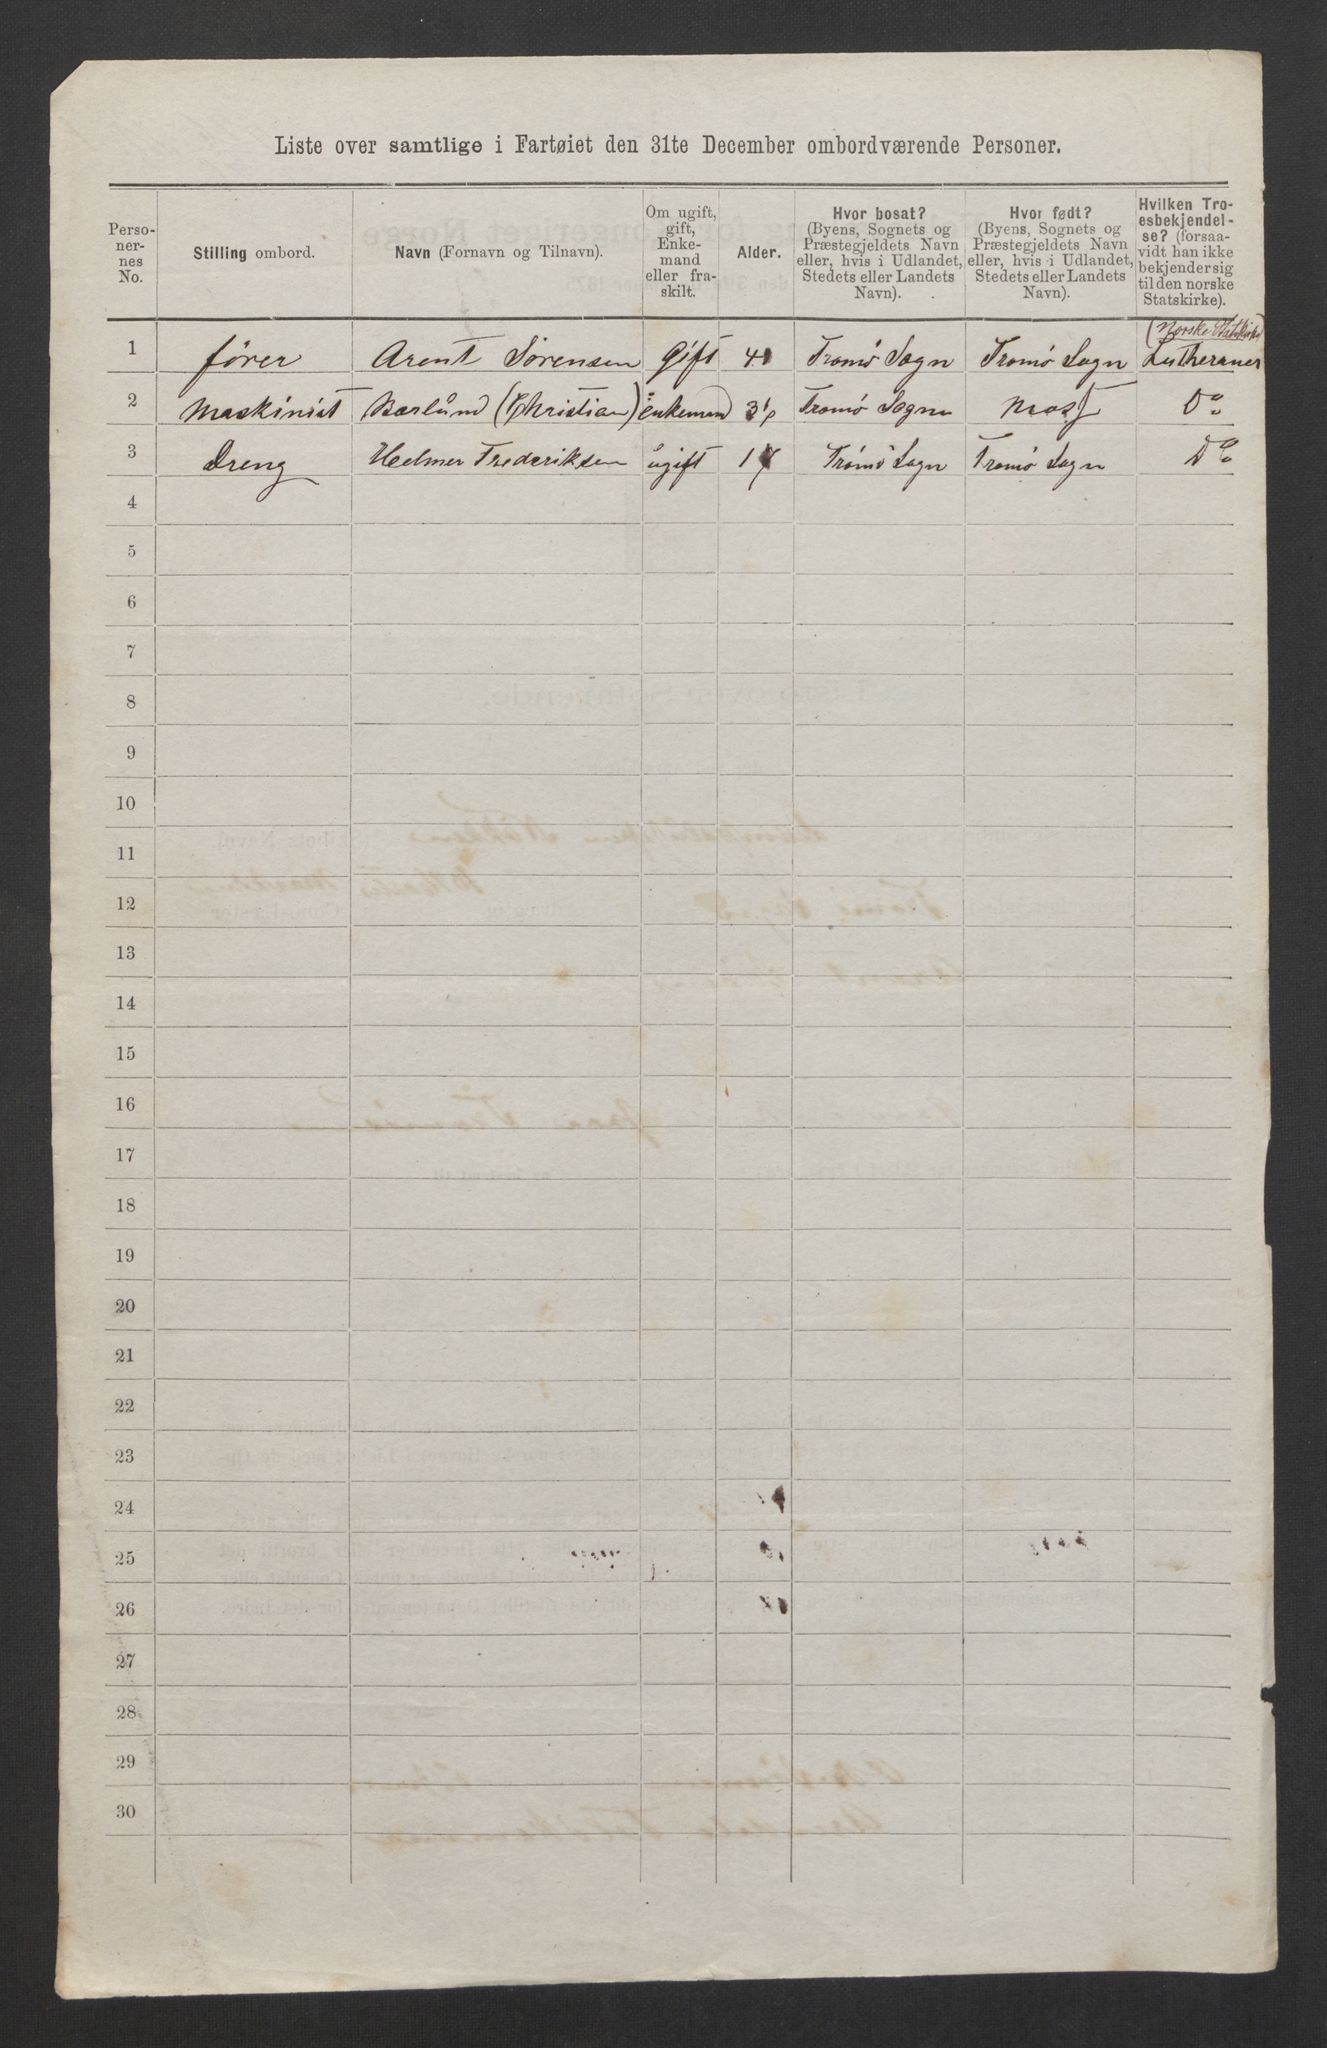 Liste over samtlige i Fartøiet den 31te December ombordværende Personer.
Perso-
ner-
nes
No.
Stilling ombord.
Navn (Fornavn og Tilnavn).
Om ugift,
gift,
Enke-
mand
eller fra-
skilt.
Alder.
Hvor bosat?
(Byens, Sognets og
Præstegjeldets Navn
eller, hvis i Udlandet,
Stedets eller Landets
Navn).
Hvor født?
(Byens, Sognets og
Præstegjeldets Navn
eller, hvis i Udlandet,
Stedets eller Landets
Navn).
Hvilken Tro-
esbekjendel-
se? (forsaa-
vidt han ikke
bekjender sig
til den norske
Statskirke).
(Norske Statskirke)
1 fører Arent Sörensen Gift 41 Tromö Sogn Tromö Sogn Lutheraner
2 Maskinist Barlund (Christian) enkeman Tromö Sogn Do
3 Dreng Helmer Frederiksen ugift 17 Tromö Sogn Tromö Sogn Do
4
5
6
7
8
9
10
11
12
13
14
15
16
17
18
19
20
21
22
23
24
25
26
27
28
29
30